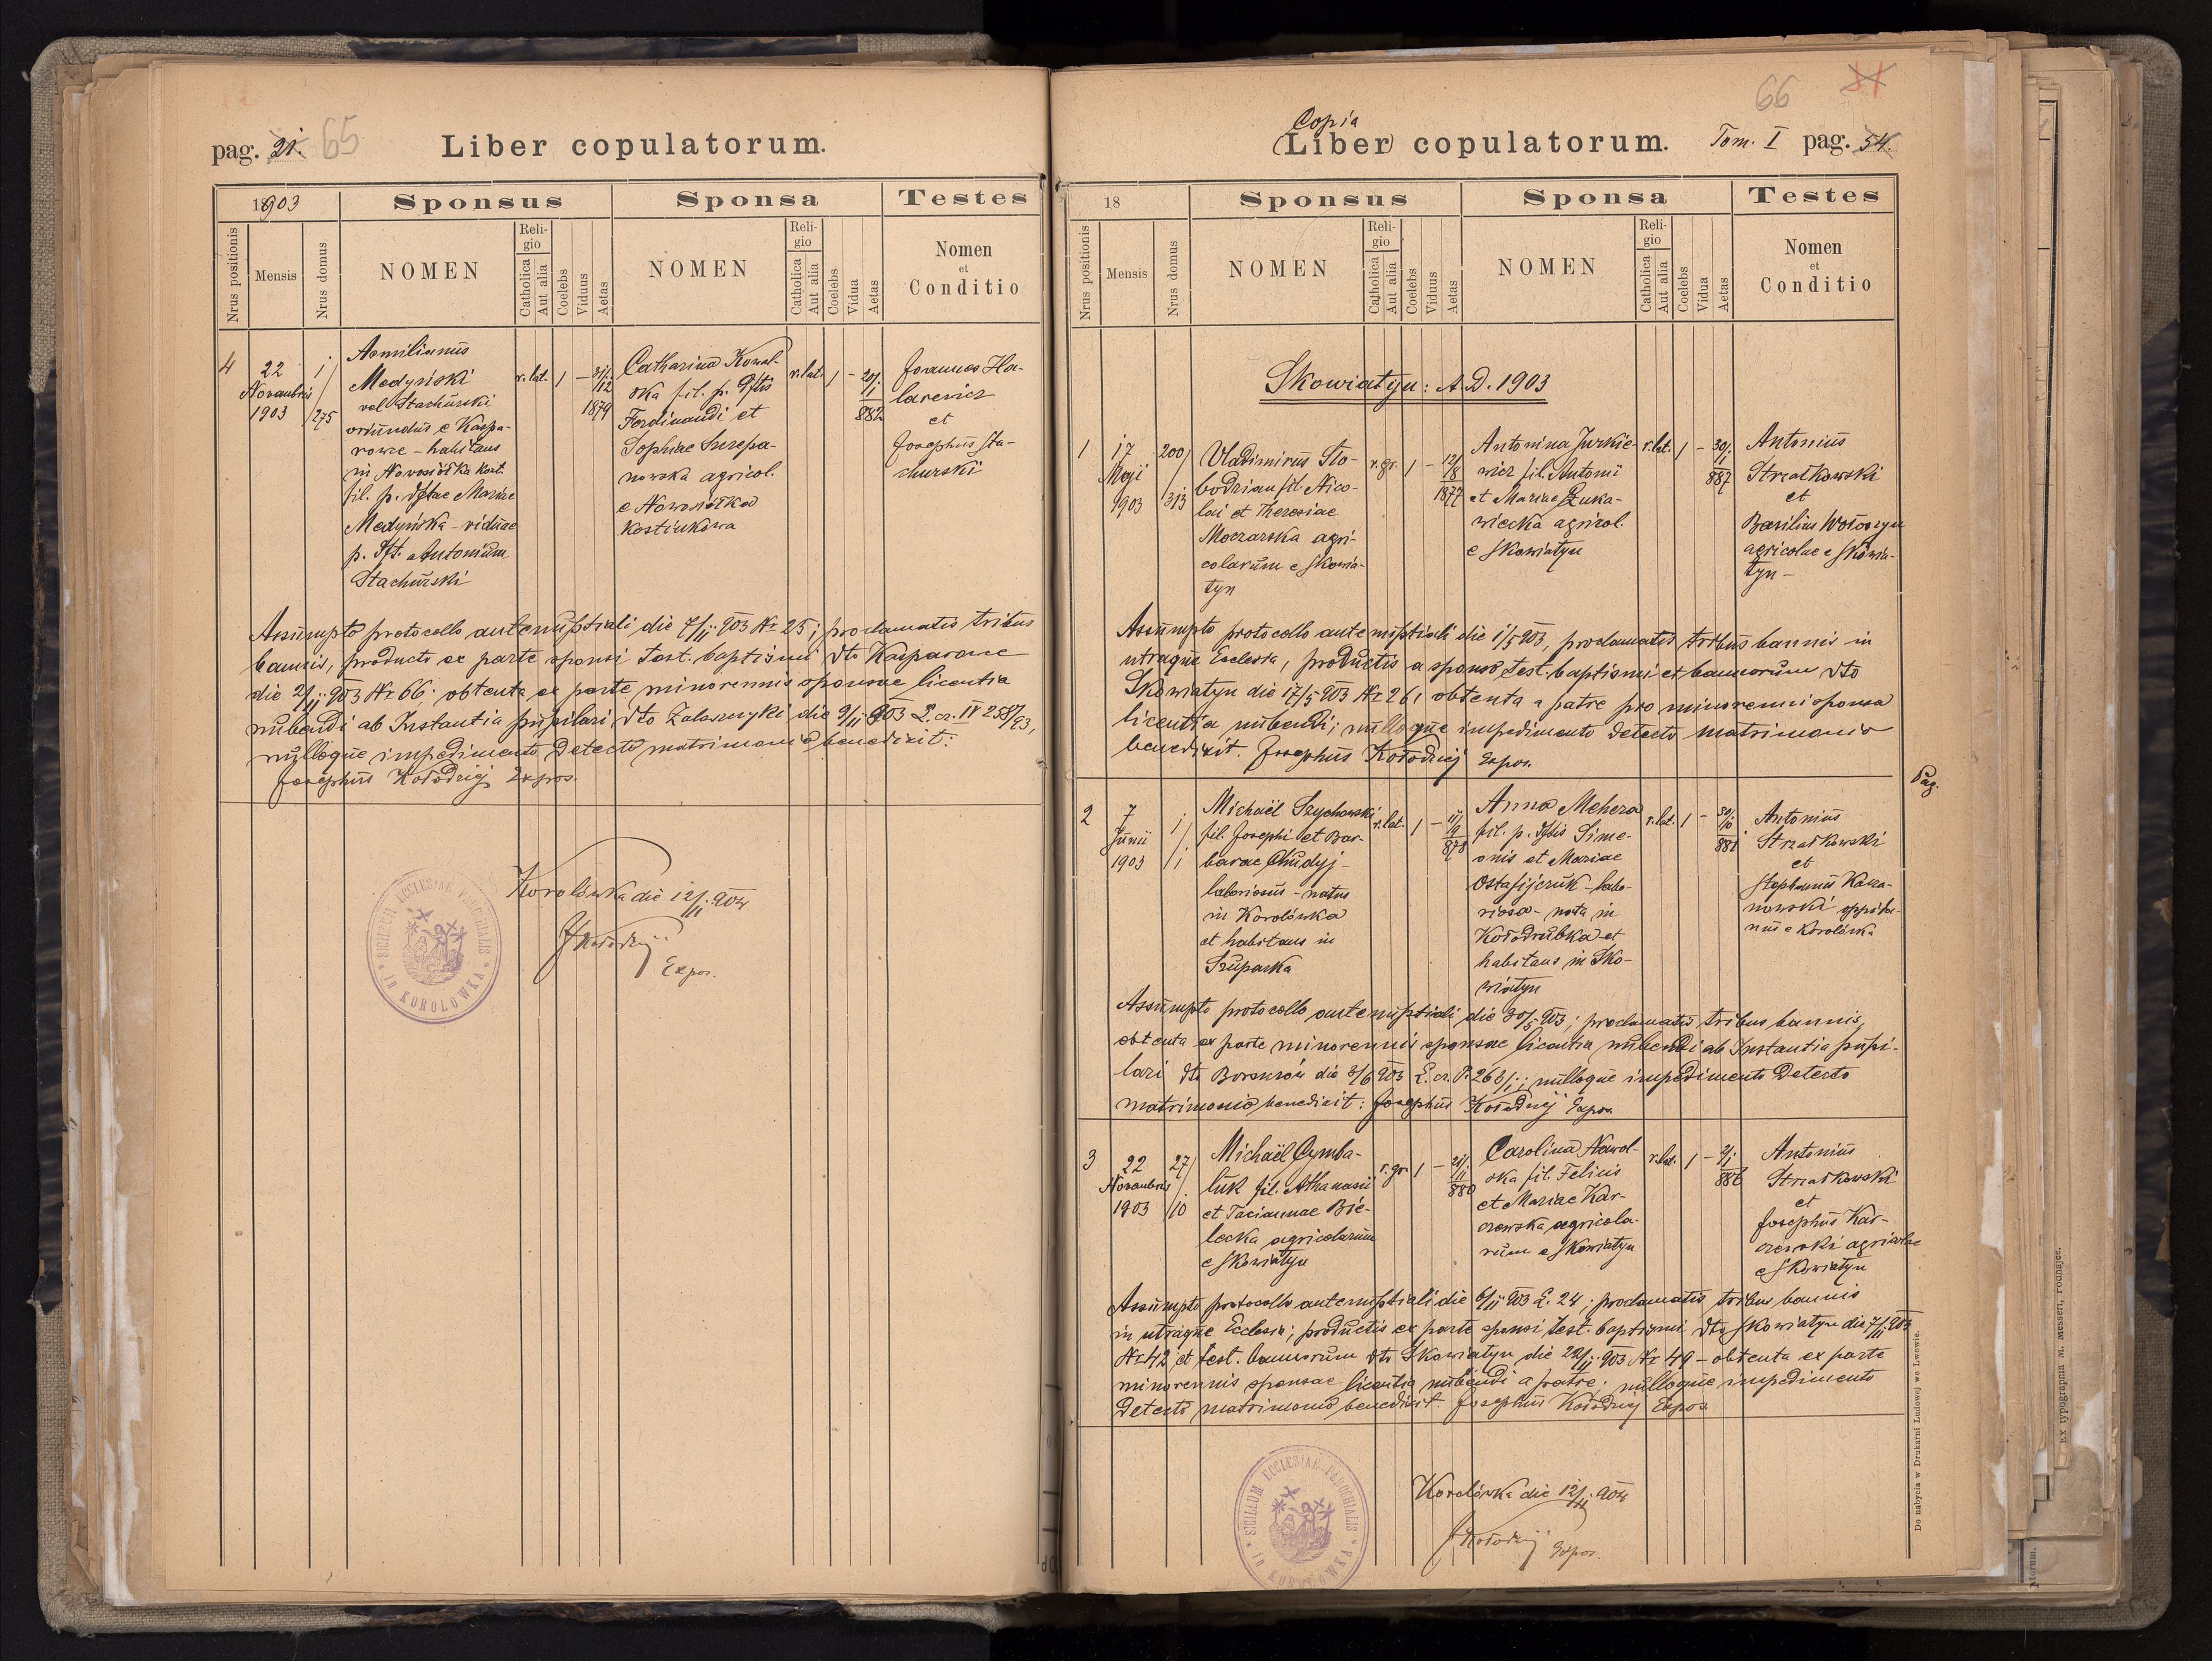 pag. 21. 65
Liber copulatorum.
1903
Sponsus
Sponsa
Testes
Nrus positionis
Mensis
Nrus domus
NOMEN
Religio
Catholica
Aut alia
Coelebs
Viduus
Aetas
NOMEN
Religio
Catholica
Aut alia
Coelebs
Vidua
Aetas
Nomen
et
Conditio
4
22
Novembris
1903
1
275
Aemilianus
Medyński
vel Stachurski
oriundus e Kaspa-
rowce - habitans
in Nowosiółka kost.
fil. p. dftae Mariae
Medyńska - viduae
p. dft. Antonium
Stachurski
r. lat.
1
-
31/
12
1879
Catharina Kowal-
ska fil. p. dftis
Ferdinandi et
Sophiae Szczepa-
nowska agricol.
e Nowosiółka
Kostiukowa
r. lat.
1
-
20/
1
882
Joannes Ha-
larewicz
et
Josephus Sta-
churski
Assumpto protocollo antenuptiali die 7/11 903 Nr 25; proclamatis tribus
bannis, producto ex parte sponsi test. baptismi dto Kasparowce
die 2/11 903 Nr 66; obtenta ex parte minorennis sponsae licentia
nubendi ab Instantia pupilari dto Zaleszczyki die 9/11 903 L. cz. IV 258/93,
nulloque impedimento detecto matrimonio benedixit:
Josephus Kołodziej Expos.
Korolówka die 12/1 904
JKołodziej
Expos.
SIGILLUM ECCLESIAE PAROCHIALIS
in KOROLOWKA
66 31
Copia
(Liber) copulatorum. Tom. I pag. 54.
18
Sponsus
Sponsa
Testes
Nrus positionis
Mensis
Nrus domus
NOMEN
Religio
Catholica
Aut alia
Coelebs
Viduus
Aetas
NOMEN
Religio
Catholica
Aut alia
Coelebs
Vidua
Aetas
Nomen
et
Conditio
Skowiatyn: A.D. 1903
1
17
Maji
1903
200/
313
Vladimirus Sło-
bodzian fil. Nico-
lai et Theresiae
Moczarska agri-
colarum e Skowia-
tyn
r. gr.
1
-
12/
8
1877
Antonina Jurkie-
wicz fil. Antonii
et Mariae Żuka-
wiecka agricol.
e Skowiatyn
r. lat.
1
-
30/
1
887
Antonius
Strzałkowski
et
Basilius Wołoszyn
agricolae e Skowia-
tyn -
Assumpto protocollo antenuptiali die 1/5 903, proclamatis tribus bannis in
utraque Ecclesia, productis a sponso test. baptismi et bannorum dto
Skowiatyn die 17/5 903 Nr 26, obtenta a patre pro minorenni sponsa
licentia nubendi; nulloque impedimento detecto matrimonio
benedixit. Josephus Kołodziej Expos.
Pag.
2
7
Junii
1903
1/
1
Michaël Szychowski
fil. Josephi et Bar-
barae Chudyj -
laboriosus - natus
in Korolówka
et habitans in
Szuparka
r. lat.
1
-
11/
9
878
Anna Mehera
fil. p. dftis Sime-
onis et Mariae
Ostafijczuk - labo-
riosa - nata in
Kołodrubka et
habitans in Sko-
wiatyn
r. lat.
1
-
30/
10
881
Antonius
Strzałkowski
et
Stephanus Kacza-
nowski oppida-
nus e Korolówka
Assumpto protocollo antenuptiali die 30/5 903; proclamatis tribus bannis,
obtenta ex parte minorennis sponsae licentia nubendi ab Instantia pupi-
lari dto Borszczów die 3/6 903 L. cz. P. 268/1; nulloque impedimento detecto
matrimonio benedixit: Josephus Kołodziej Expos.
3
22
Novembris
1903
27/
10
Michaël Cymba-
luk fil. Athanasii
et Taciannae Bie-
lecka agricolarum
e Skowiatyn
r. gr.
1
-
21/
11
880
Carolina Nawol-
ska fil. Felicis
et Mariae Kar-
czewska agricola-
rum e Skowiatyn
r. lat.
1
-
2/
1
886
Antonius
Strzałkowski
et
Josephus Kar-
czewski agricolae
e Skowiatyn
Assumpto protocollo antenuptiali die 6/11 903 L. 24; proclamatis tribus bannis
in utraque Ecclesia; productis ex parte sponsi test. baptismi dto Skowiatyn die 7/11 903
Nr 42 et test. bannorum dto Skowiatyn die 22/11 903 Nr 49 - obtenta ex parte
minorennis sponsae licentia nubendi a patre; nulloque impedimento
detecto matrimonio benedixit. Josephus Kołodziej Expos.
Korolówka die 12/1 904
JKołodziej
Expos.
SIGILLUM ECCLESIAE PAROCHIALIS
in KOROLOWKA
Do nabycia w Drukarni Ludowej we Lwowie.
Ex typographia M. Messeri, rodnajce.